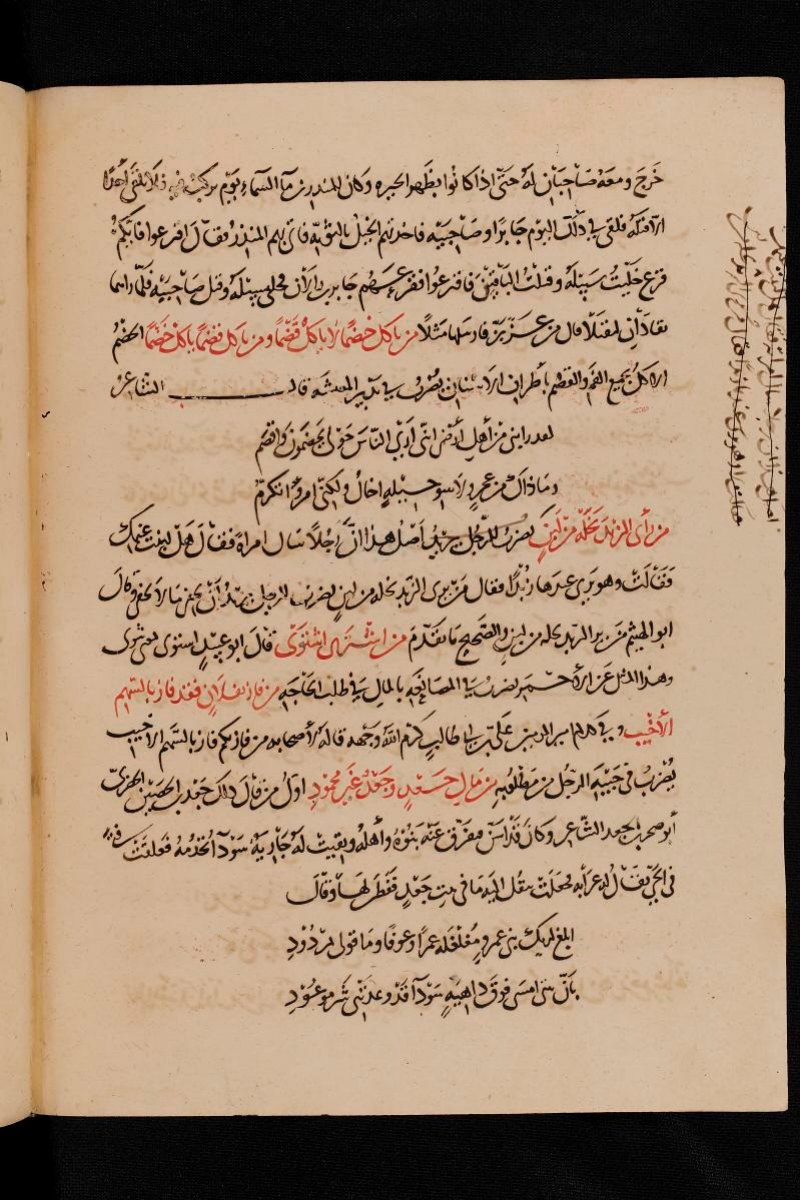 خَرَجَ ومعَهُ صَاحِبَان لهُ حتّى اذا كانُوا بظَهرِ الحيره وكان المنذر بن مآ السمآءِ يَوْم يركب فيه فلا يلقى أحدًا
الا قتلهُ فلقى فِي ذلك اليوْم جَابرًا وصَاحبَيْه فاخذتهم الخيل بالثويّة فاتى بهم المنذرُ فقال اقترعوا فايّكم
قرع خلّيت سَبيلهُ وقتلتُ الباقيَيْن فاقترعُوا فقرعهم جابر بن رالان فخلى سبيلهُ وقتل صَاحبَيْه فلمّا راهما
يقادَان ليقتلا قال من عَزّ بَزّ فارسلها مثلًا من ياكل خَضْمًا لا ياكلُ قَضْمًا ومن ياكل قضمًا ياكل خَضْمًا الخضمُ
الاكل بجميع الفم والقضم بأطراف الاسنان يُضرب في تدبير المعيشة قال الشاعر
لقد رابنى من أهلِ أرْضى انّنى أرَى النّاسَ حَوْلى يخضمُون واقضم
وما ذاك من عجزٍ ولا سوء حيلةٍ اخالُ ولكنّى امرؤٌ اتكرّم
من رأى الزبد يخَلهُ من لبَنٍ يضربُ للرّجُل أصْلُ هذا انّ رجُلًا سال امراة فقال هل لبنت غنمك
فقالت لا وهو يرى عندها زُبْدًا فقال من يرى الزبد يخله من لبن يضرب للرجل يريد أنْ يخفى ما لا يخفى وقالَ
ابو الهيثم من ير الزبد يخله من لبنٍ والصّحيح ما تقدّم من اشترى اشتوَى قالَ ابو عبيدٍ اشتوى بمعنى شوى
وهذا المثل عَن الاحْمَر يضربُ في المصانعَةِ بالمالِ في طلب الحَاجَةِ من فازَ بفُلَانٍ فقد فاز بالسّهم
الأخْيب وفي كلام امير المؤمنين علي بن ابى طالب كرّم اللّه وجهه قاله لأصحابه من فاز بكم فاز بالسّهم الأخيب
يُضْربُ في خيْبة الرّجُل من مَطْلوبه من مالِ جَعْدٍ وجَعْدٌ غَير محمُودٍ اولُ من قالَ ذلك جعد بن الحصين الحضرى
أبو صخر بن جعد الشّاعر وكان قد أسَنّ فتفرّق عنه بَنُوهُ وأهله وبقيتْ لهُ جَاريةٌ سَوْدآ تخدُمُهُ فعلقَتْ فتى
في الحَيّ يقال له عرابه فجعلتْ تنقُل اليه ما في بيتِ جَعْدٍ فَفَطِنَ لها وقالَ
ابلغ لديك بنى عمرٍو مُغلغله عمرًا وعوفًا وما قولى بمرْدُوْدِ
بأنّ بيتى امسى فوق دَاهِيَةٍ سَوْدآ قد وعدتنى شرّ موعُوْدِ